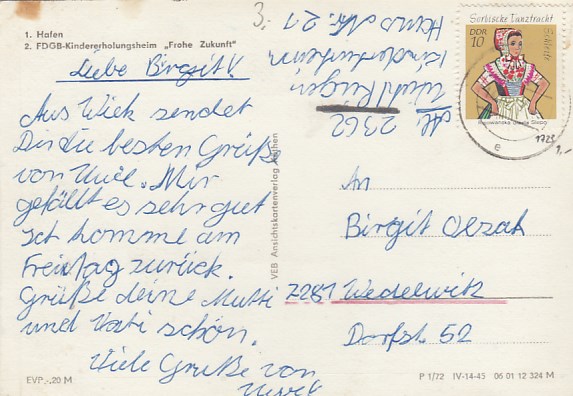 1. Hafen
2. FDGB-Kindererholungsheim „Frohe Zukunft"
Liebe Birgit!
Aus Wiek sendet
Dir die besten Grüße
von Uwe. Mir
gefällt es sehr gut
Ich komme am
Freitag zurück.
Grüße deine Mutti
und Vati schön.
Viele Grüße von
EVP -,20 M
VEB Ansichtskartenverlag
3,-
Haus Nr. 21
Kinderturheim
Wiek/Rügen
2362
Sorbische Tanztracht
DDR
10
Schleife
1728
1,-
An
Birgit
7281 Wedelwitz
Dorfstr. 52
P 1/72 IV-14-45 06 01 12 324 M